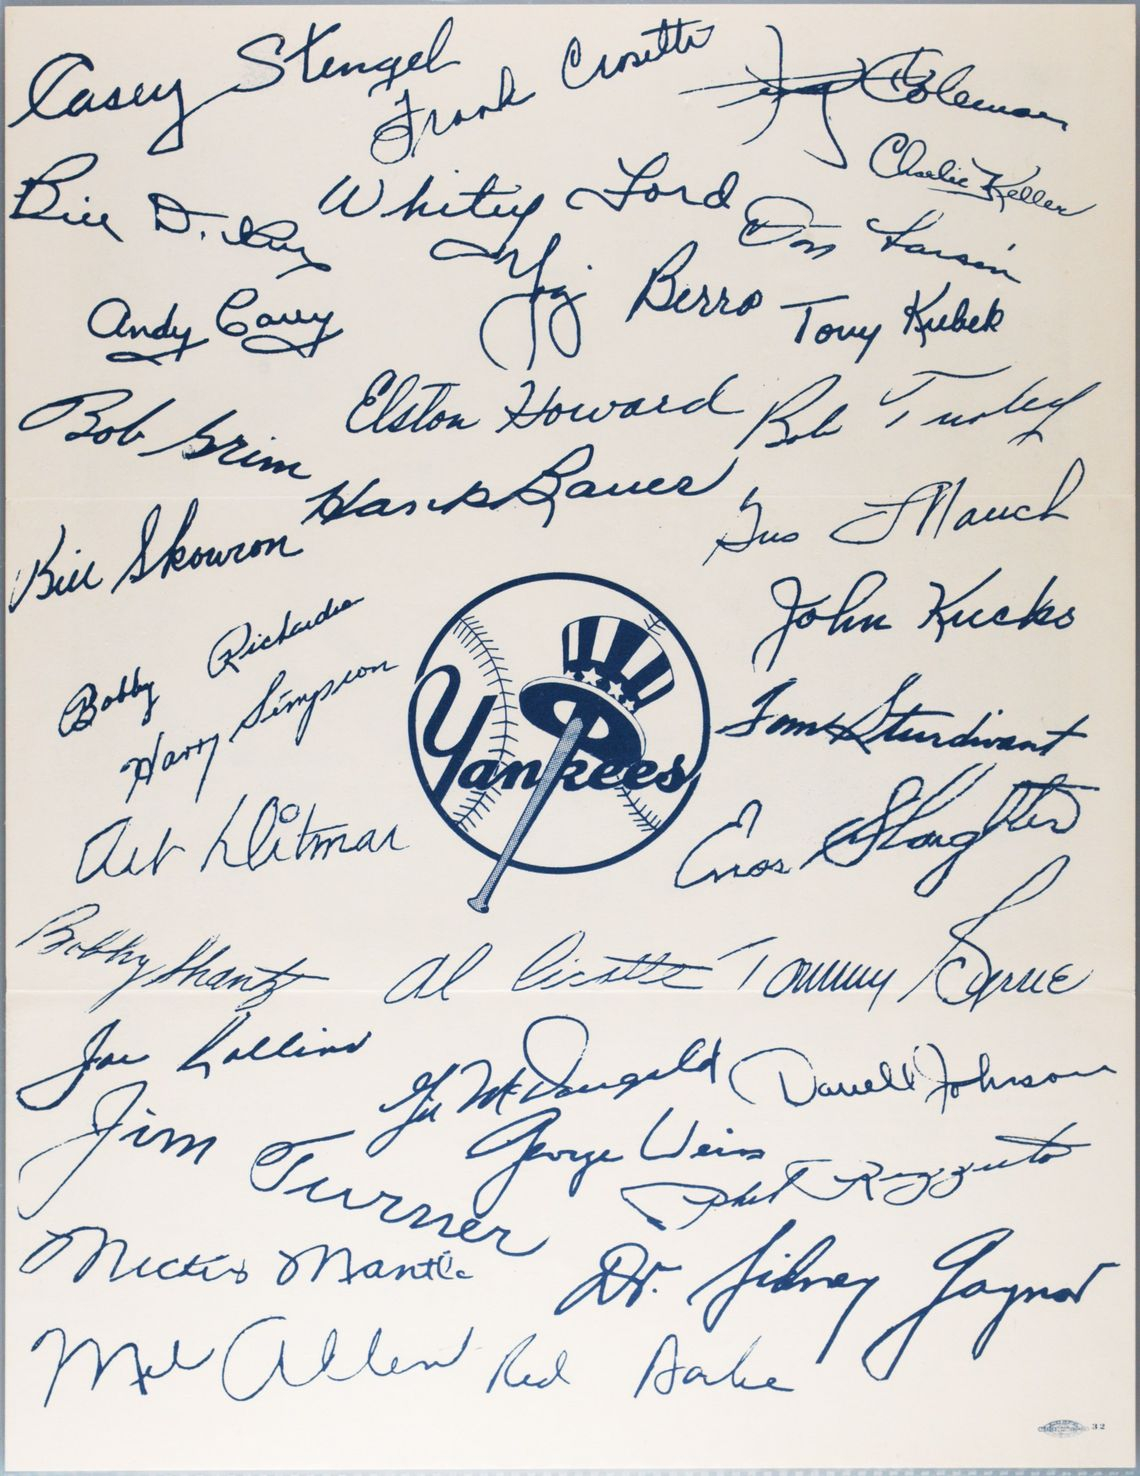 Casey Stengel
Frank Crosetti
Jerry Coleman
Charlie Keller
Bill Dickey
Whitey Ford
Don Larsen
Yogi Berra
Andy Carey
Tony Kubek
Elston Howard
Bob Turley
Bob Grim
Hank Bauer
Gus Mauch
Bill Skowron
John Kucks
Bobby Richardson
Harry Simpson
Yankees
Tom Sturdivant
Art Ditmar
Enos Slaughter
Bobby Shantz
Al Cicotte
Tommy Byrne
Joe Collins
Gil McDougald
Darrell Johnson
Jim Turner
George Weiss
Phil Rizzuto
Mickey Mantle
Dr. Sidney Gaynor
Mel Allen
Red Barber
32